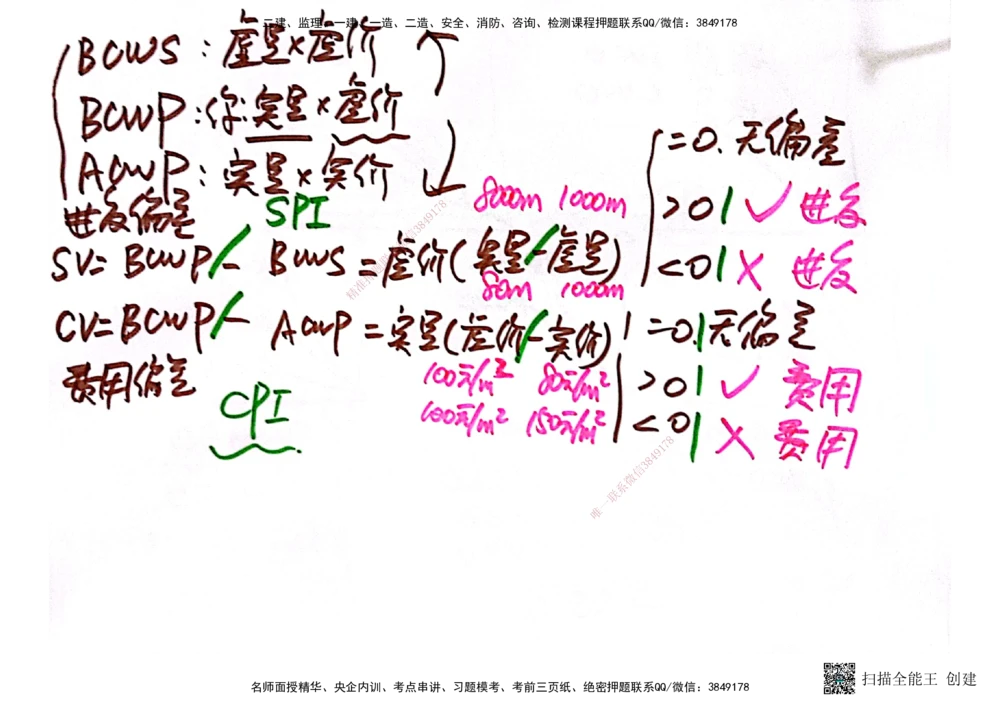 二建、监理、一建、一造、二造、安全、消防、咨询、检测课程押题联系QQ/微信：3849178
BCWS：虚量×虚价
BCWP：你：实量×虚价
ACWP：实量×实价
=0. 无偏差
进度偏差 SPI
8000m 1000m
>0 1 ✓ 进度
SV=BCWP/- BCWS=虚价(实量/-虚量)
<0 1 × 进度
80m 1000m
CV=BCWP/- ACWP=实量(虚价/-实价)
=0.1无偏差
费用偏差
100元/m² 80元/m²
>0 1 ✓ 费用
CPI
100元/m² 150元/m²
<0 1 × 费用
唯一联系微信3849178
名师面授精华、央企内训、考点串讲、习题模考、考前三页纸、绝密押题联系QQ/微信：3849178
扫描全能王 创建